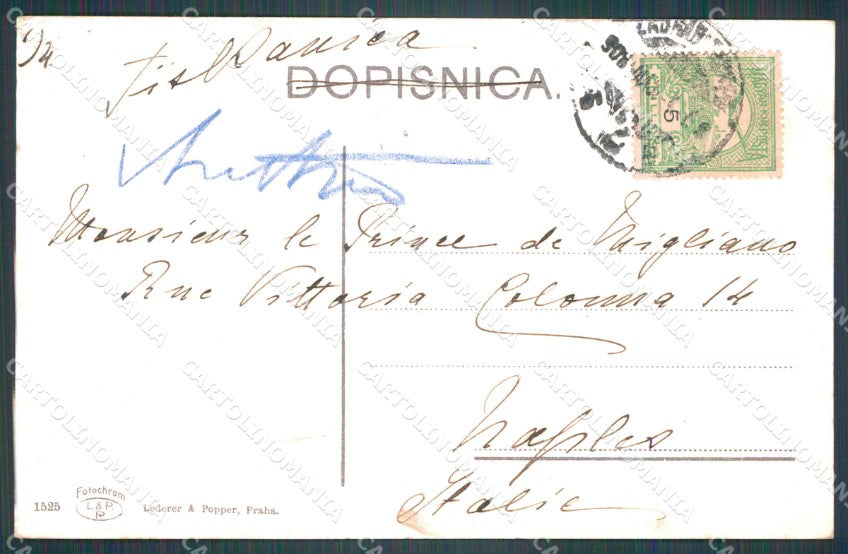 DOPISNICA.
Monsieur le Prince de Migliano
Rue Vittoria Colonna 14
Naples
Italie
1525
Fotochrom
L&P.
P
Lederer & Popper, Praha.
5
CARTOLINOMANIA